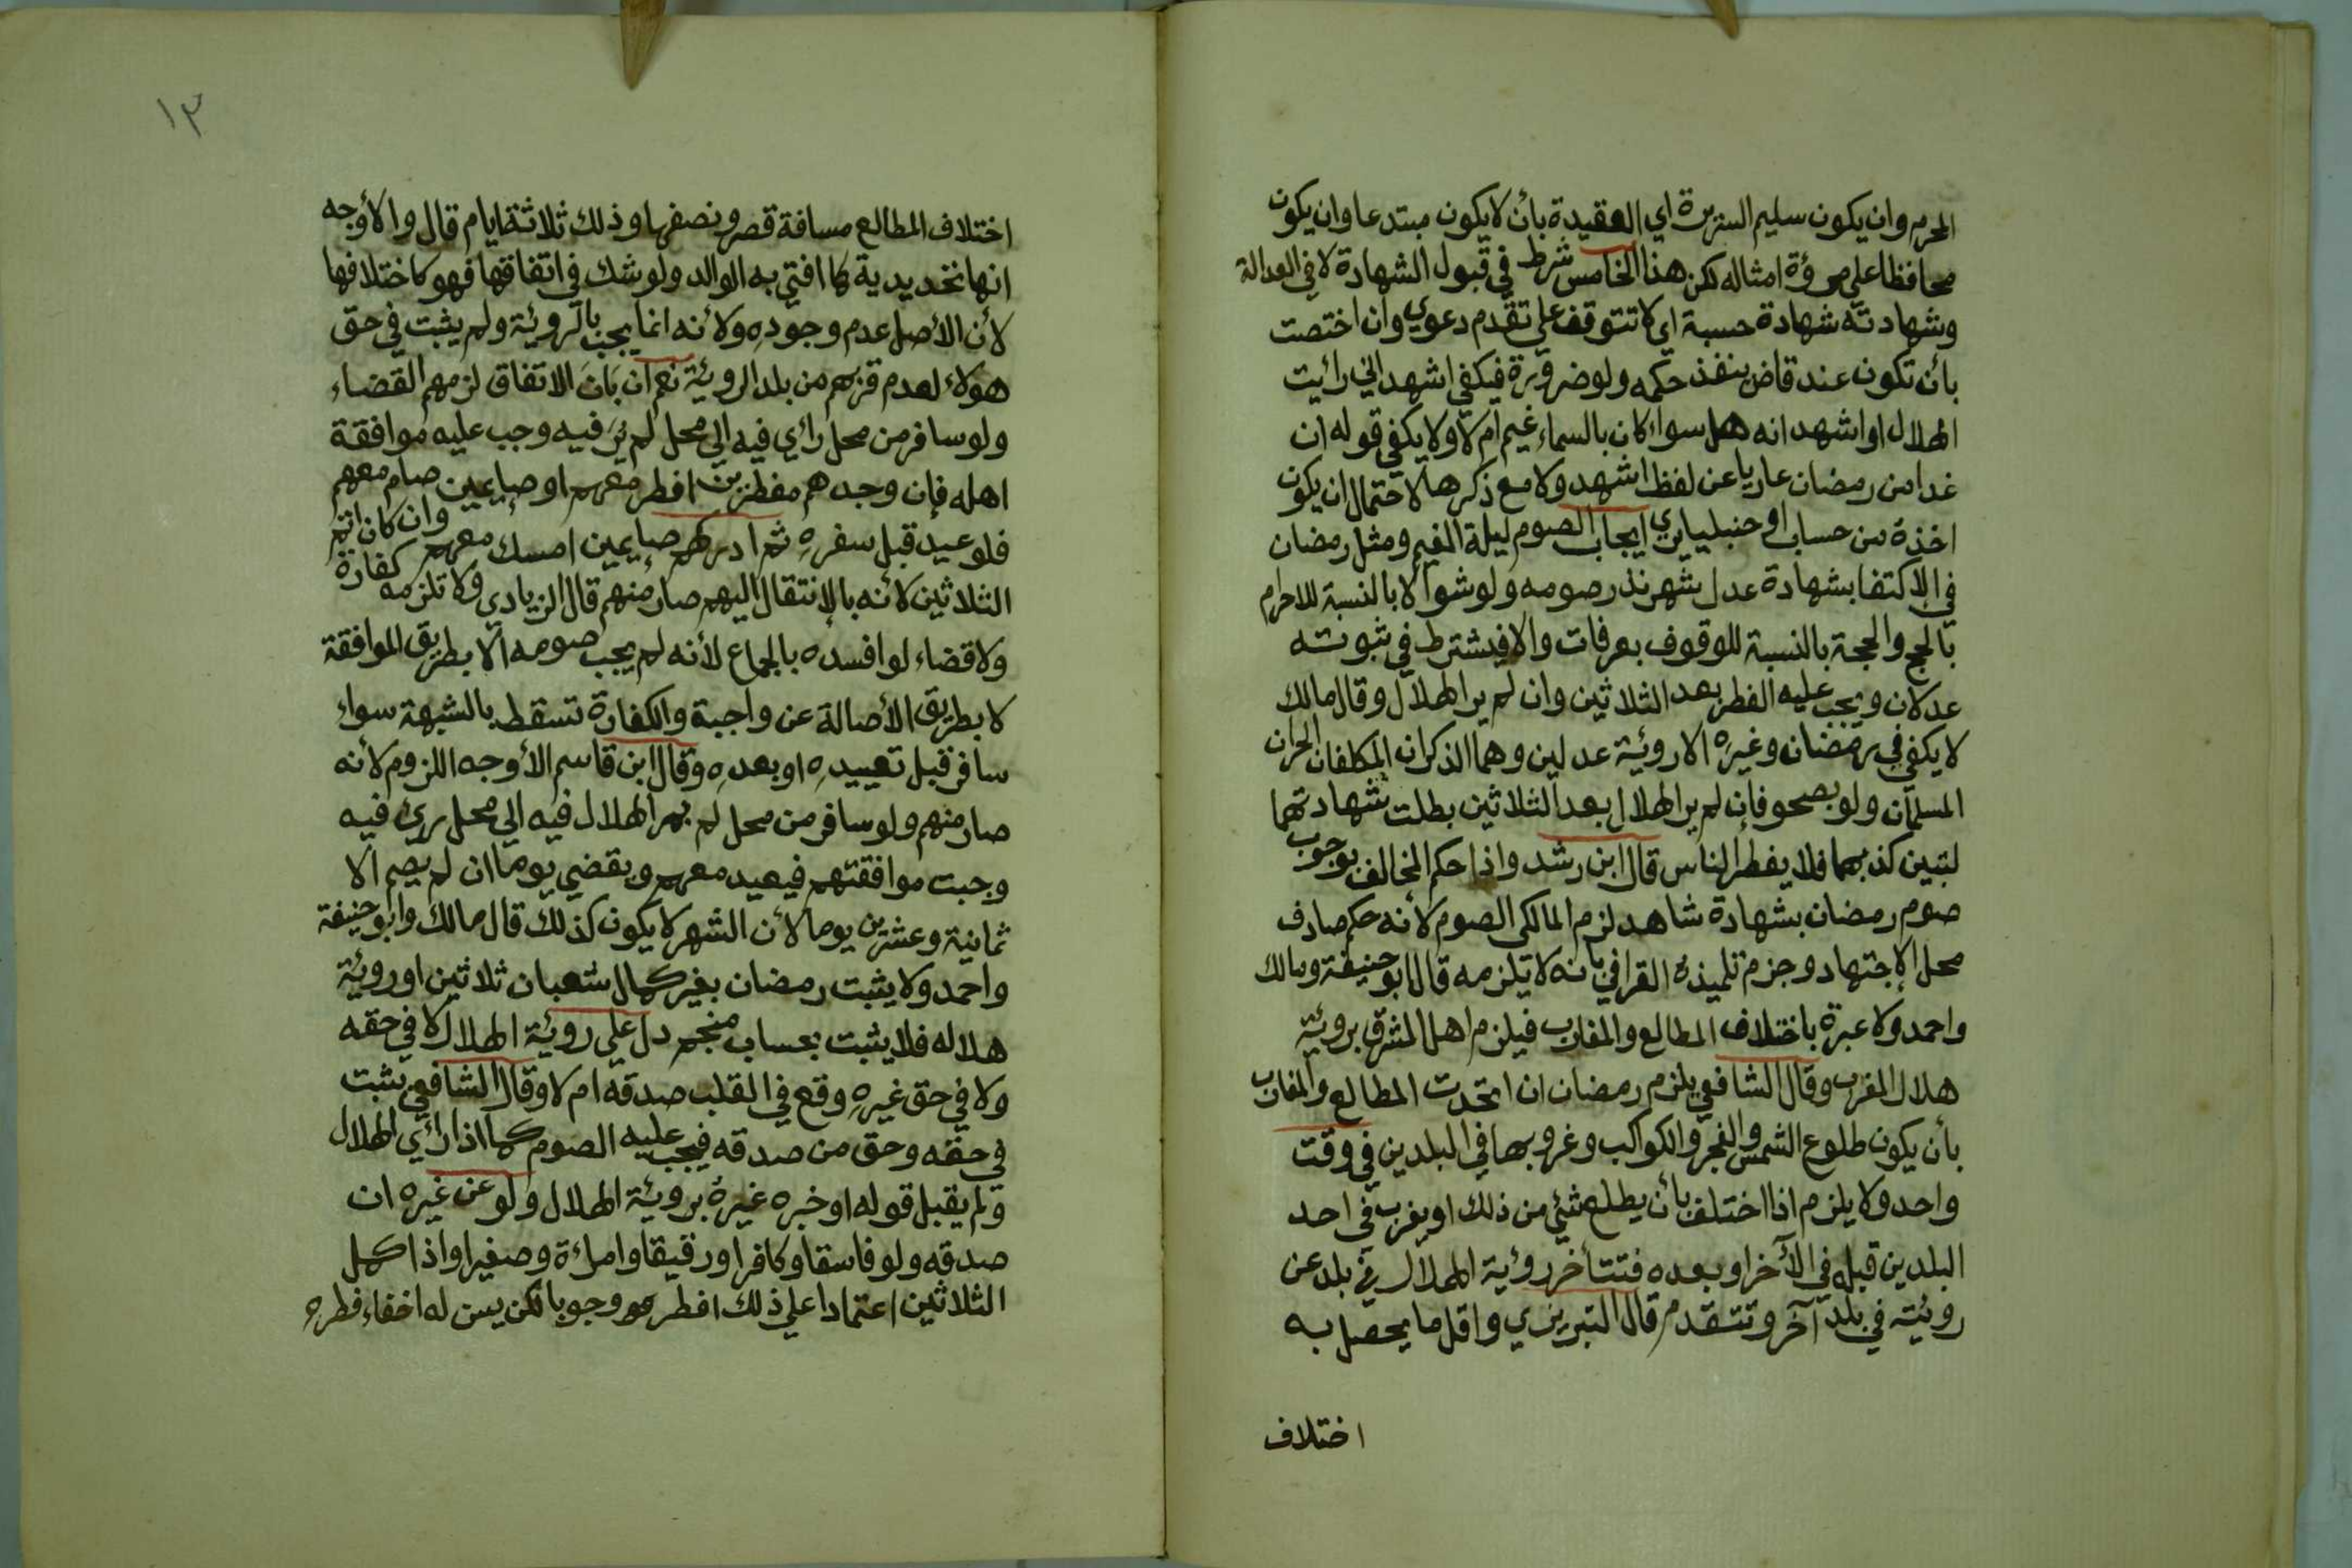 المحرم وان يكون سليم السريرة اي العقيدة بأن لا يكون مبتدعا وان يكون
محافظا على مروءة امثاله لكن هذا الخامس شرط في قبول الشهادة لا في العدالة
وشهادته شهادة حسبة اي لا تتوقف علي تقدم دعوي وان اختصت
بأن تكون عند قاض ينفذ حكمه ولو ضرورة فيكفي اشهد اني رائيت
الهلال او اشهد انه هل سواء كان بالسماء غيم ام لا ولا يكفي قوله ان
غدا من رمضان عاريا عن لفظ اشهد ولا مع ذكرها لاحتمال ان يكون
اخذه من حساب او حنبليا يري ايجاب الصوم ليلة الغيم ومثل رمضان
في الاكتفا بشهادة عدل شهر نذر صومه ولو شوالا بالنسبة للاحرام
بالحج والحجة بالنسبة للوقوف بعرفات والا فيشترط في ثبوته
عدلان ويجب عليه الفطر بعد الثلاثين وان لم ير الهلال وقال مالك
لا يكفي في رمضان وغيره الا روئية عدلين وهما الذكران المكلفان الحران
المسلمان ولو بصحو فإن لم ير الهلال بعد الثلاثين بطلت شهادتهما
لتبين كذبهما فلا يفطر الناس قال ابن رشد واذا حكم المخالف بوجوب
صوم رمضان بشهادة شاهد لزم المالكى الصوم لأنه حكم صادف
محل الإجتهاد وجزم تلميذه القرافي بأنه لا يلزمه قال ابو حنيفة ومالك
واحمد ولا عبرة باختلاف المطالع والمغارب فيلزم اهل المشرق بروئية
هلال المغرب وقال الشافعي يلزم رمضان ان اتحدت المطالع والمغارب
بأن يكون طلوع الشمس والفجر والكواكب وغروبها في البلدين في وقت
واحد ولا يلزم اذا اختلف بأن يطلع شئي من ذلك او يغرب في احد
البلدين قبله في الآخر او بعده فتتأخر روئية الهلال في بلد عن
روئيته في بلد آخر وتتقدم قال التبريزي واقل ما يحصل به
اختلاف
١٣
اختلاف المطالع مسافة قصر ونصفها وذلك ثلاثة ايام قال والأوجه
انها تحديدية كما افتي به الوالد ولو شك في اتفاقها فهو كاختلافها
لأن الأصل عدم وجوده ولأنه انما يجب بالروئية ولم يثبت في حق
هولاء لعدم قربهم من بلد الروئية نعم ان بَانَ الاتفاق لزمهم القضاء
ولو سافر من محل رائي فيه الي محل لم يُرَ فيه وجب عليه موافقة
اهله فإن وجدهم مفطرين افطر معهم او صايمين صام معهم
فلو عيد قبل سفره ثم ادركهم صايمين امسك معهم وان كان اتم
الثلاثين لأنه بالإنتقال اليهم صار منهم قال الزيادي ولا تلزمه كفارة
ولا قضاء لو افسده بالجماع لأنه لم يجب صومه الا بطريق الموافقة
لا بطريق الأصالة عن واجبة والكفارة تسقط بالشبهة سواء
سافر قبل تعييده او بعده وقال ابن قاسم الأوجه اللزوم لأنه
صار منهم ولو سافر من محل لم ير الهلال فيه الي محل رئي فيه
وجبت موافقتهم فيعيد معهم ويقضي يوما ان لم يصم الا
ثمانية وعشرين يوما لأن الشهر لا يكون كذلك قال مالك وابو حنيفة
واحمد ولا يثبت رمضان بغير كمال شعبان ثلاثين او روئية
هلاله فلا يثبت بحساب منجم دل علي روئية الهلال لا في حقه
ولا في حق غيره وقع في القلب صدقه ام لا وقال الشافعي يثبت
في حقه وحق من صدقه فيجب عليه الصوم كما اذا رائي الهلال
ولم يقبل قوله او خبره غيره بروئية الهلال ولو عن غيره ان
صدقه ولو فاسقا وكافرا ورقيقا وامراءة وصغيرا واذا كمل
الثلاثين اعتمادا علي ذلك افطر هو وجوبا لكن يسن له اخفاء فطره